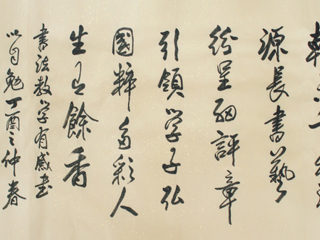 源長書藝
紛呈細評章
引領学子弘
國粹多彩人
生有餘香
書法教学有感書
以自勉丁酉之仲春